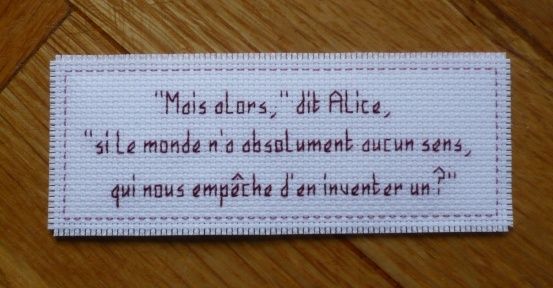 "Mais alors," dit Alice,
"si le monde n'a absolument aucun sens,
qui nous empêche d'en inventer un?"